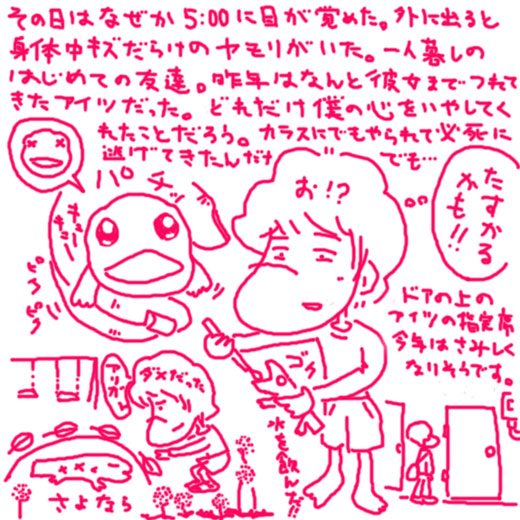 その日はなぜか5:00に目が覚めた。外に出ると
身体中キズだらけのヤモリがいた。一人暮しの
はじめての友達。昨年はなんと彼女までつれて
きたアイツだった。どれだけ僕の心をいやしてく
れたことだろう。カラスにでもやられて必死に
逃げてきたんだナ
でも…
パチッ
キュー
キュー
ピクピク
お!?
たすかる
かも!!
ドアの上の
アイツの指定席
今年はさみしく
なりそうです。
ゴク
水を飲んだ!!
アリガト
ダメだった
さよなら